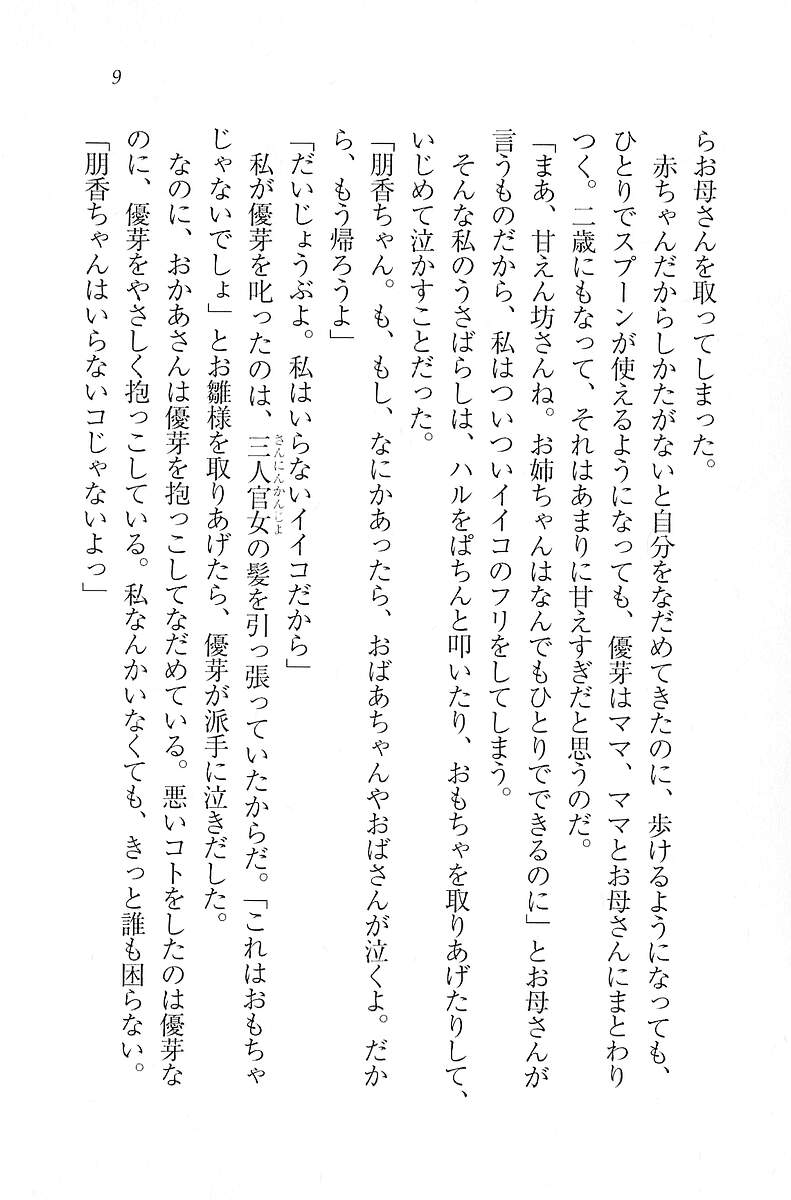 9
らお母さんを取ってしまった。
赤ちゃんだからしかたがないと自分をなだめてきたのに、歩けるようになっても、
ひとりでスプーンが使えるようになっても、優芽はママ、ママとお母さんにまとわり
つく。二歳にもなって、それはあまりに甘えすぎだと思うのだ。
「まあ、甘えん坊さんね。お姉ちゃんはなんでもひとりでできるのに」とお母さんが
言うものだから、私はついついイイコのフリをしてしまう。
そんな私のうさばらしは、ハルをぱちんと叩いたり、おもちゃを取りあげたりして、
いじめて泣かすことだった。
「朋香ちゃん。も、もし、なにかあったら、おばあちゃんやおばさんが泣くよ。だか
ら、もう帰ろうよ」
「だいじょうぶよ。私はいらないイイコだから」
私が優芽を叱ったのは、三人官女の髪を引っ張っていたからだ。「これはおもちゃ
さんにんかんじょ
じゃないでしょ」とお雛様を取りあげたら、優芽が派手に泣きだした。
なのに、おかあさんは優芽を抱っこしてなだめている。悪いコトをしたのは優芽な
のに、優芽をやさしく抱っこしている。私なんかいなくても、きっと誰も困らない。
「朋香ちゃんはいらないコじゃないよっ」